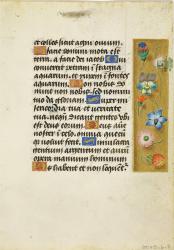 et colles sicut agni ovium.
A facie domini mota est
terra a facie dei iacob Qui
convertit petram in stagna
aquarum et rupem in fontes
aquarum. Non nobis do
mine non nobis sed nomini
tuo da gloriam. Super mi
sericordia tua et veritate
tua nequando dicant gentes ubi
est deus eorum. Deus aut
noster in celo omnia que
cunque voluit fecit. Simulacra
gentium argentum et aurum
opera manuum hominum
Os habent et non loquent